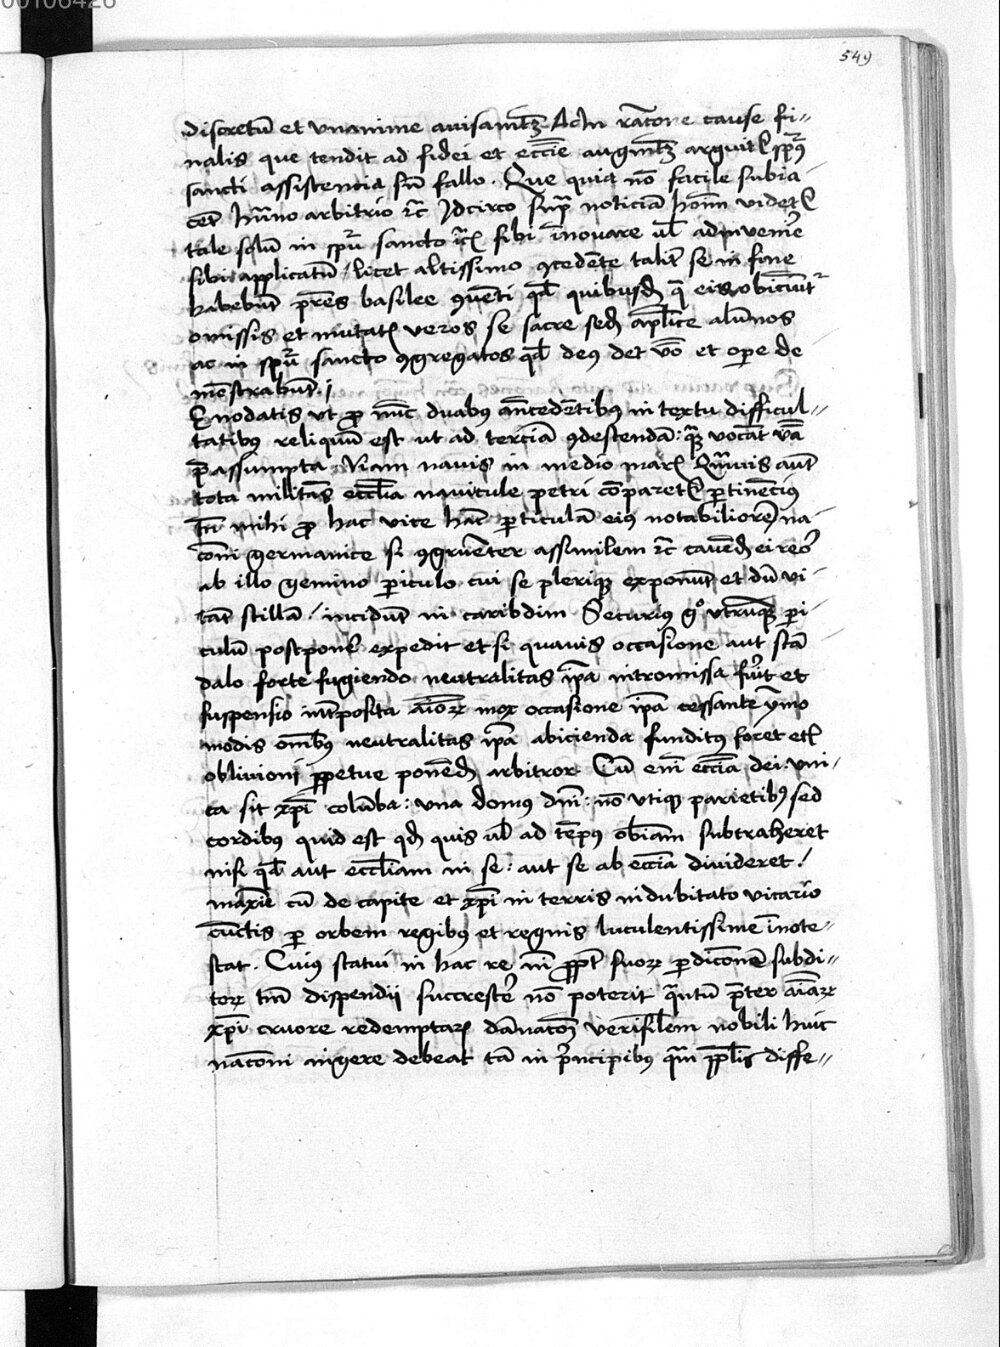 00106426
549
discretu͂ et vnanime auisamͭtꝫ Ac in rac͂one cause fi⸗
nalis que tendit ad fidei et ecc͂ie augmͭtꝫ arguit᷑ spūs
sancti assistencia sn͂ fallo . Que quia no͂ facile subia⸗
cet hu͂no arbitrio ꝛc̄ Idcirco sup̄ noticia͂ hom͂ videt᷑
tale solu͂ in spū sancto sibi i͂nouare ul̄ adinuenire
sibi applicatu͂ / licet altissimo ꝯcede͂te talit͛ se in fine
habebu͂t pr͂es basilee ꝯue͂ti qd̄ quibusd͂ q͛ eis obiciu͂t᷑
omissis et mutat᷑ veros se sacre sed͂ apl͂ice alu͂nos
ac in spū sancto ꝯgregatos qd̄ deꝰ det vo͂ et oꝑe de⸗
mo͂strabu͂t .
Enodatis vt ꝓ nu͂c duabꝰ an͂cede͂tibꝰ in textu difficul⸗
tatibꝰ reliquu͂ est ut ad tercia͂ ꝯdescenda͂ : vocat
p͂assumpta Nam nauis in medio mar᷑ Qͣmuis aut͂
tota milita͂s eccl͂ia nauicule petri co͂paret᷑ ꝑtine͂ciꝰ
tn͂ mihi ꝓ hac vice ha͂c ꝑticula͂ eiꝰ notabiliore͂ na⸗
co͂ni germanice si ꝯgrue͂ter assimilem ꝛc̄ caue͂d͂ ei reor
ab illo gemino ꝑiculo cui se pleriqꝫ exponu͂t et du͂ vi⸗
ta͂t scilla͂ / incidu͂t in caribdim Securiꝰ gͦ vtru͂qꝫ ꝑi⸗
culu͂ postpon͛e expedit et si quauis occasione aut sca͂⸗
dalo forte fugiendo neutralitas ip͂a intromissa fu͛it et
suspensio int͛posita a͂ioꝝ mox occasione ip͂a cessante ymo
modis om͂ibꝰ neutralitas ip͂a abicienda funditꝰ foret et᷑
obliuioni ꝑpetue pone͂d͂ arbitror Cu͂ em͂ ecc͂ia dei : vni⸗
ca sit xp͂i colu͂ba : vna domus dn͂i : no͂ vtiqꝫ parietibꝰ sed
cordibus quid est qd͂ quis ul̄ ad te͂pꝰ ob͂iam subtraheret
nisi qd̄ aut eccl͂iam in se : aut se ab ecc͂ia diuideret !
maxi͂e cu͂ de capite et xp͂i in terris indubitato vicario
cu͂ctis ꝑ orbem regibꝰ et regnis luculentissime i͂note⸗
scat . Cuius statui in hac re ni͂ ꝓpt͛ suoꝝ ꝑdico͂ne͂ subdi⸗
toꝝ tm͂ dispendii succresce͛ no͂ poterit qͣntu͂ p͂ter a͂iaꝝ
xp͂i cruore redemptaꝝ da͂naco͂ꝫ verisil͂em nobili huic
naco͂ni ingere debeat ta͂ in p͂ncipibꝰ qͣm ppl͂is diffe⸗